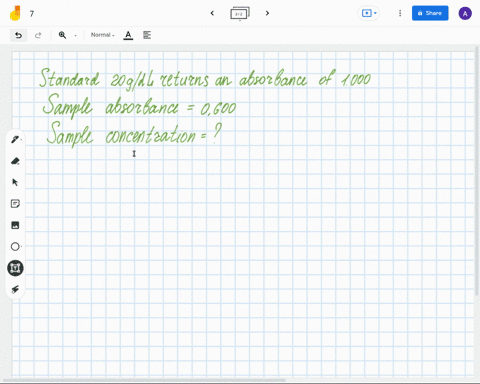 7
Share
A
Normal
A
Standard 20g/dL returns an absorbance of 1.000
Sample absorbance = 0.600
Sample concentration = ?